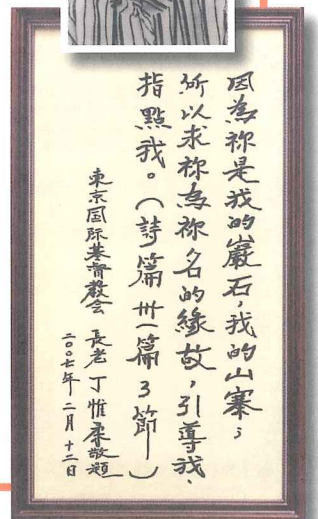 因為祢是我的巖石,我的山寨;
所以求祢為祢名的緣故,引導我、
指點我。(詩篇卅一篇3節)
東京国际基督教会 長老 丁惟柔敬題
二〇〇七年二月十二日